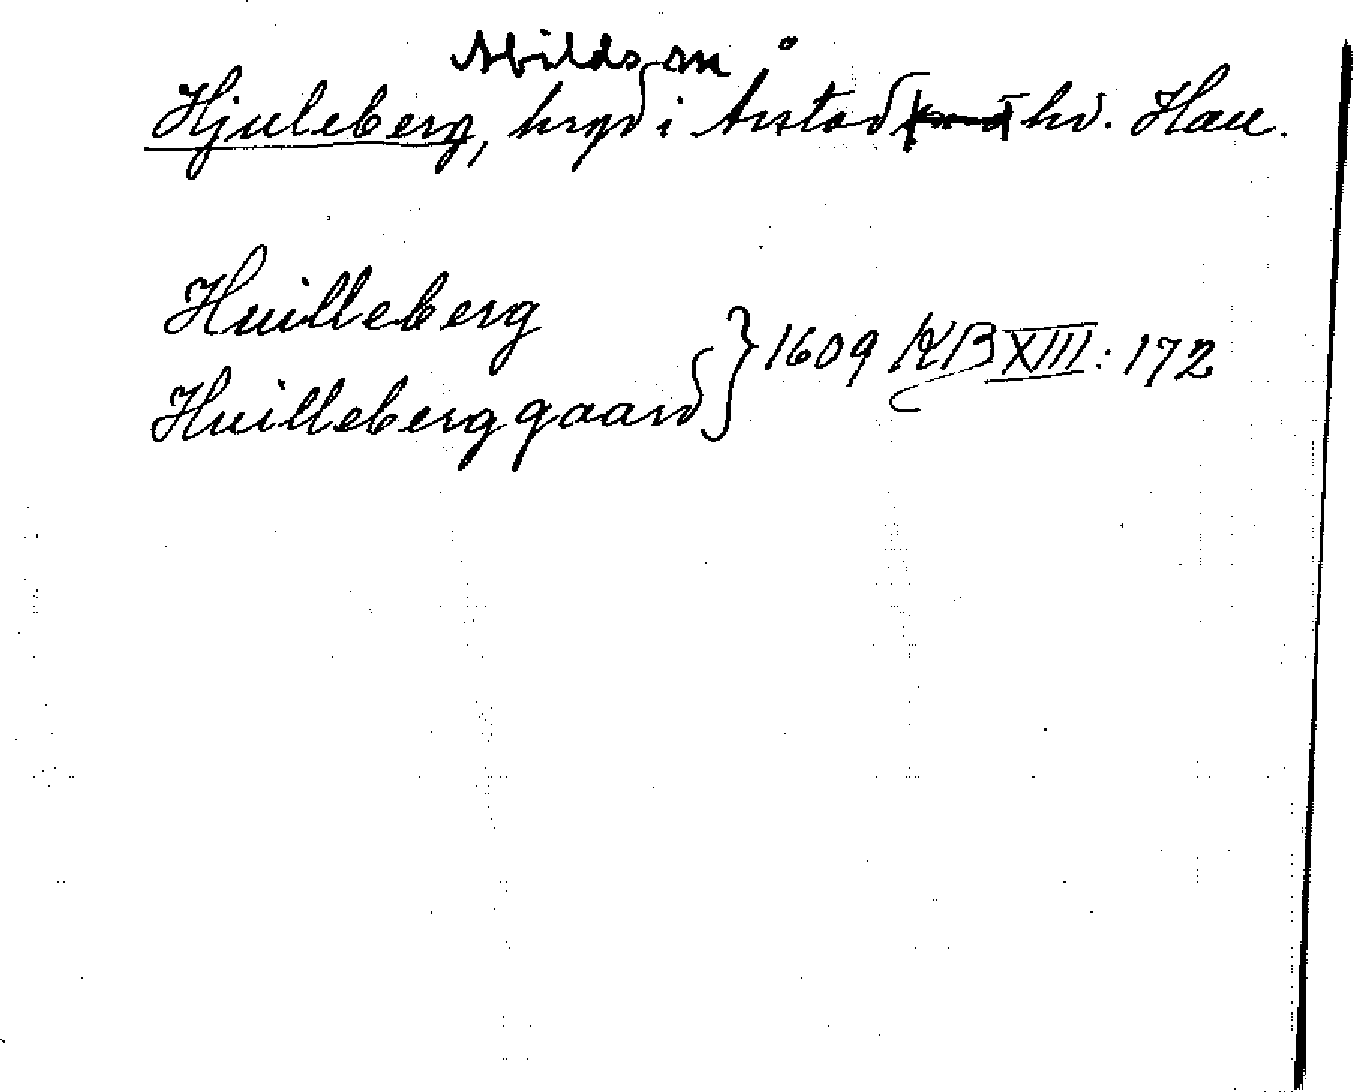 Abilds sn
Hjuleberg, hrgd i Årstad hd. Hall.
Huilleberg
Huilleberg gaard } 1609 KB XIII: 172